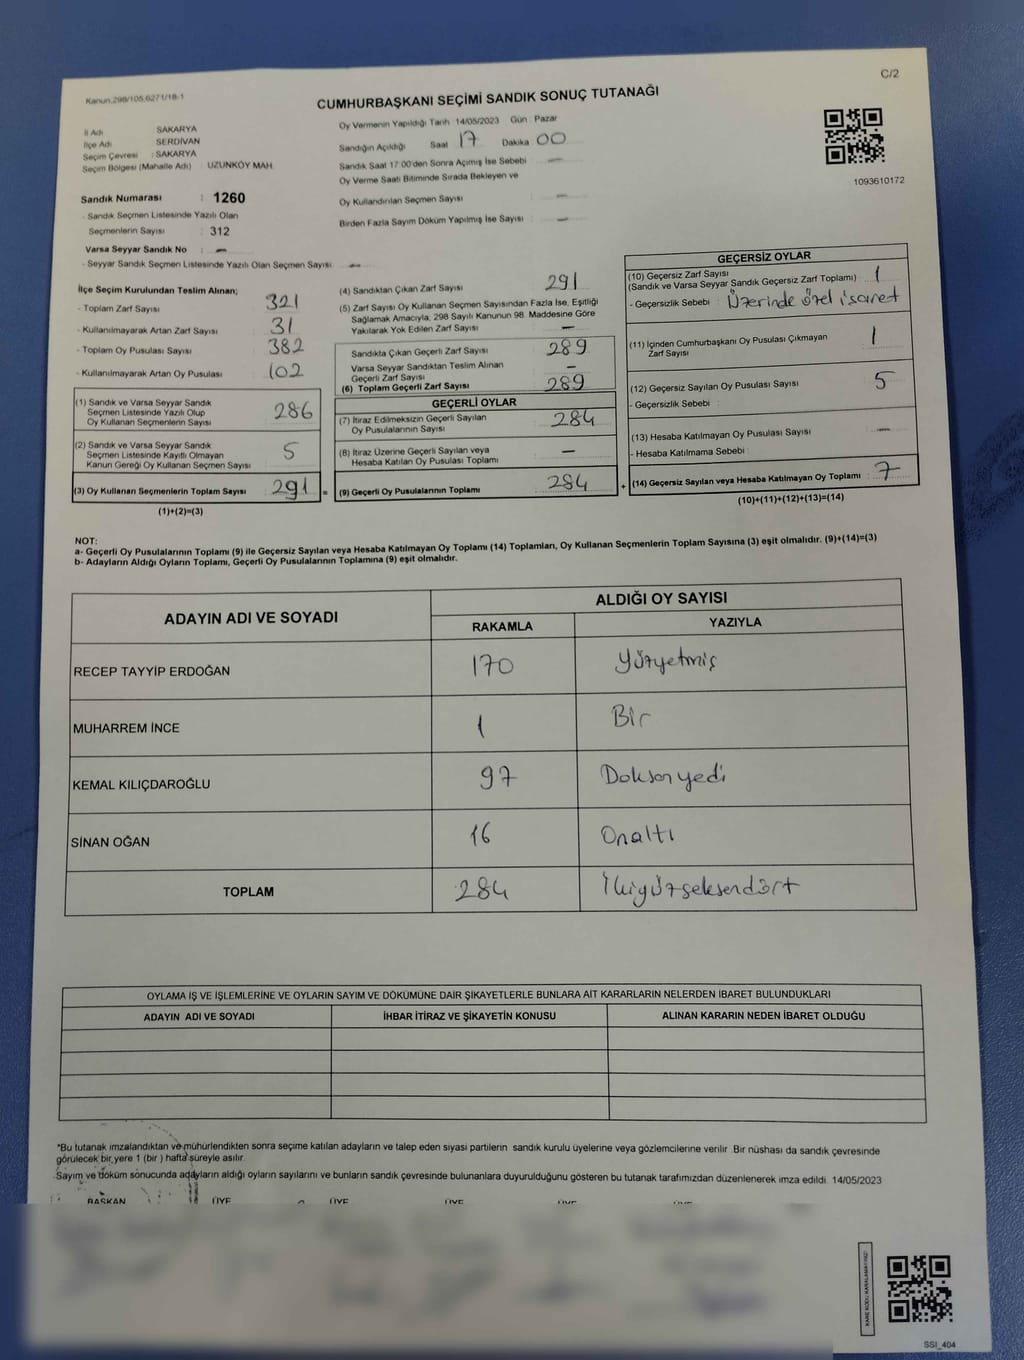 C/2
Kanun,298/105,6271/18-1
CUMHURBAŞKANI SEÇİMİ SANDIK SONUÇ TUTANAĞI
İl Adı SAKARYA
İlçe Adı SERDİVAN
Seçim Çevresi : SAKARYA
Seçim Bölgesi (Mahalle Adı) : UZUNKÖY MAH.
Oy Vermenin Yapıldığı Tarih 14/05/2023 Gün : Pazar
Sandığın Açıldığı Saat 17 Dakika 00
Sandık Saat 17:00'den Sonra Açımış İse Sebebi : —
Oy Verme Saati Bitiminde Sırada Bekleyen ve
Oy Kullandırılan Seçmen Sayısı : —
Birden Fazla Sayım Döküm Yapılmış İse Sayısı : —
1093610172
Sandık Numarası : 1260
- Sandık Seçmen Listesinde Yazılı Olan
Seçmenlerin Sayısı : 312
Varsa Seyyar Sandık No : —
- Seyyar Sandık Seçmen Listesinde Yazılı Olan Seçmen Sayısı : —
İlçe Seçim Kurulundan Teslim Alınan;
- Toplam Zarf Sayısı : 321
- Kullanılmayarak Artan Zarf Sayısı : 31
- Toplam Oy Pusulası Sayısı : 382
- Kullanılmayarak Artan Oy Pusulası : 102
(1) Sandık ve Varsa Seyyar Sandık
Seçmen Listesinde Yazılı Olup
Oy Kullanan Seçmenlerin Sayısı : 286
(2) Sandık ve Varsa Seyyar Sandık
Seçmen Listesinde Kayıtlı Olmayan
Kanun Gereği Oy Kullanan Seçmen Sayısı : 5
(3) Oy Kullanan Seçmenlerin Toplam Sayısı : 291 =
(1)+(2)=(3)
(4) Sandıktan Çıkan Zarf Sayısı : 291
(5) Zarf Sayısı Oy Kullanan Seçmen Sayısından Fazla İse, Eşitliği
Sağlamak Amacıyla, 298 Sayılı Kanunun 98. Maddesine Göre
Yakılarak Yok Edilen Zarf Sayısı : —
Sandıkta Çıkan Geçerli Zarf Sayısı : 289
Varsa Seyyar Sandıktan Teslim Alınan
Geçerli Zarf Sayısı : —
(6) Toplam Geçerli Zarf Sayısı : 289
GEÇERLİ OYLAR
(7) İtiraz Edilmeksizin Geçerli Sayılan
Oy Pusulalarının Sayısı : 284
(8) İtiraz Üzerine Geçerli Sayılan veya
Hesaba Katılan Oy Pusulası Toplamı : —
(9) Geçerli Oy Pusulalarının Toplamı : 284 +
GEÇERSİZ OYLAR
(10) Geçersiz Zarf Sayısı
(Sandık ve Varsa Seyyar Sandık Geçersiz Zarf Toplamı) : 1
- Geçersizlik Sebebi : Üzerinde özel işaret
(11) İçinden Cumhurbaşkanı Oy Pusulası Çıkmayan
Zarf Sayısı : 1
(12) Geçersiz Sayılan Oy Pusulası Sayısı : 5
- Geçersizlik Sebebi :
(13) Hesaba Katılmayan Oy Pusulası Sayısı : —
- Hesaba Katılmama Sebebi :
(14) Geçersiz Sayılan veya Hesaba Katılmayan Oy Toplamı : 7
(10)+(11)+(12)+(13)=(14)
NOT:
a- Geçerli Oy Pusulalarının Toplamı (9) ile Geçersiz Sayılan veya Hesaba Katılmayan Oy Toplamı (14) Toplamları, Oy Kullanan Seçmenlerin Toplam Sayısına (3) eşit olmalıdır. (9)+(14)=(3)
b- Adayların Aldığı Oyların Toplamı, Geçerli Oy Pusulalarının Toplamına (9) eşit olmalıdır.
ADAYIN ADI VE SOYADI
ALDIĞI OY SAYISI
RAKAMLA YAZIYLA
RECEP TAYYİP ERDOĞAN 170 Yüzyetmiş
MUHARREM İNCE 1 Bir
KEMAL KILIÇDAROĞLU 97 Doksanyedi
SİNAN OĞAN 16 Onaltı
TOPLAM 284 İkiyüzseksendört
OYLAMA İŞ VE İŞLEMLERİNE VE OYLARIN SAYIM VE DÖKÜMÜNE DAİR ŞİKAYETLERLE BUNLARA AİT KARARLARIN NELERDEN İBARET BULUNDUKLARI
ADAYIN ADI VE SOYADI İHBAR İTİRAZ VE ŞİKAYETİN KONUSU ALINAN KARARIN NEDEN İBARET OLDUĞU
*Bu tutanak imzalandıktan ve mühürlendikten sonra seçime katılan adayların ve talep eden siyasi partilerin sandık kurulu üyelerine veya gözlemcilerine verilir. Bir nüshası da sandık çevresinde
görülecek bir yere 1 (bir) hafta süreyle asılır.
Sayım ve döküm sonucunda adayların aldığı oyların sayılarını ve bunların sandık çevresinde bulunanlara duyurulduğunu gösteren bu tutanak tarafımızdan düzenlenerek imza edildi. 14/05/2023
BAŞKAN ÜYE ÜYE ÜYE ÜYE ÜYE
KARE KODU KARALAMAYINIZ!
SSI_404